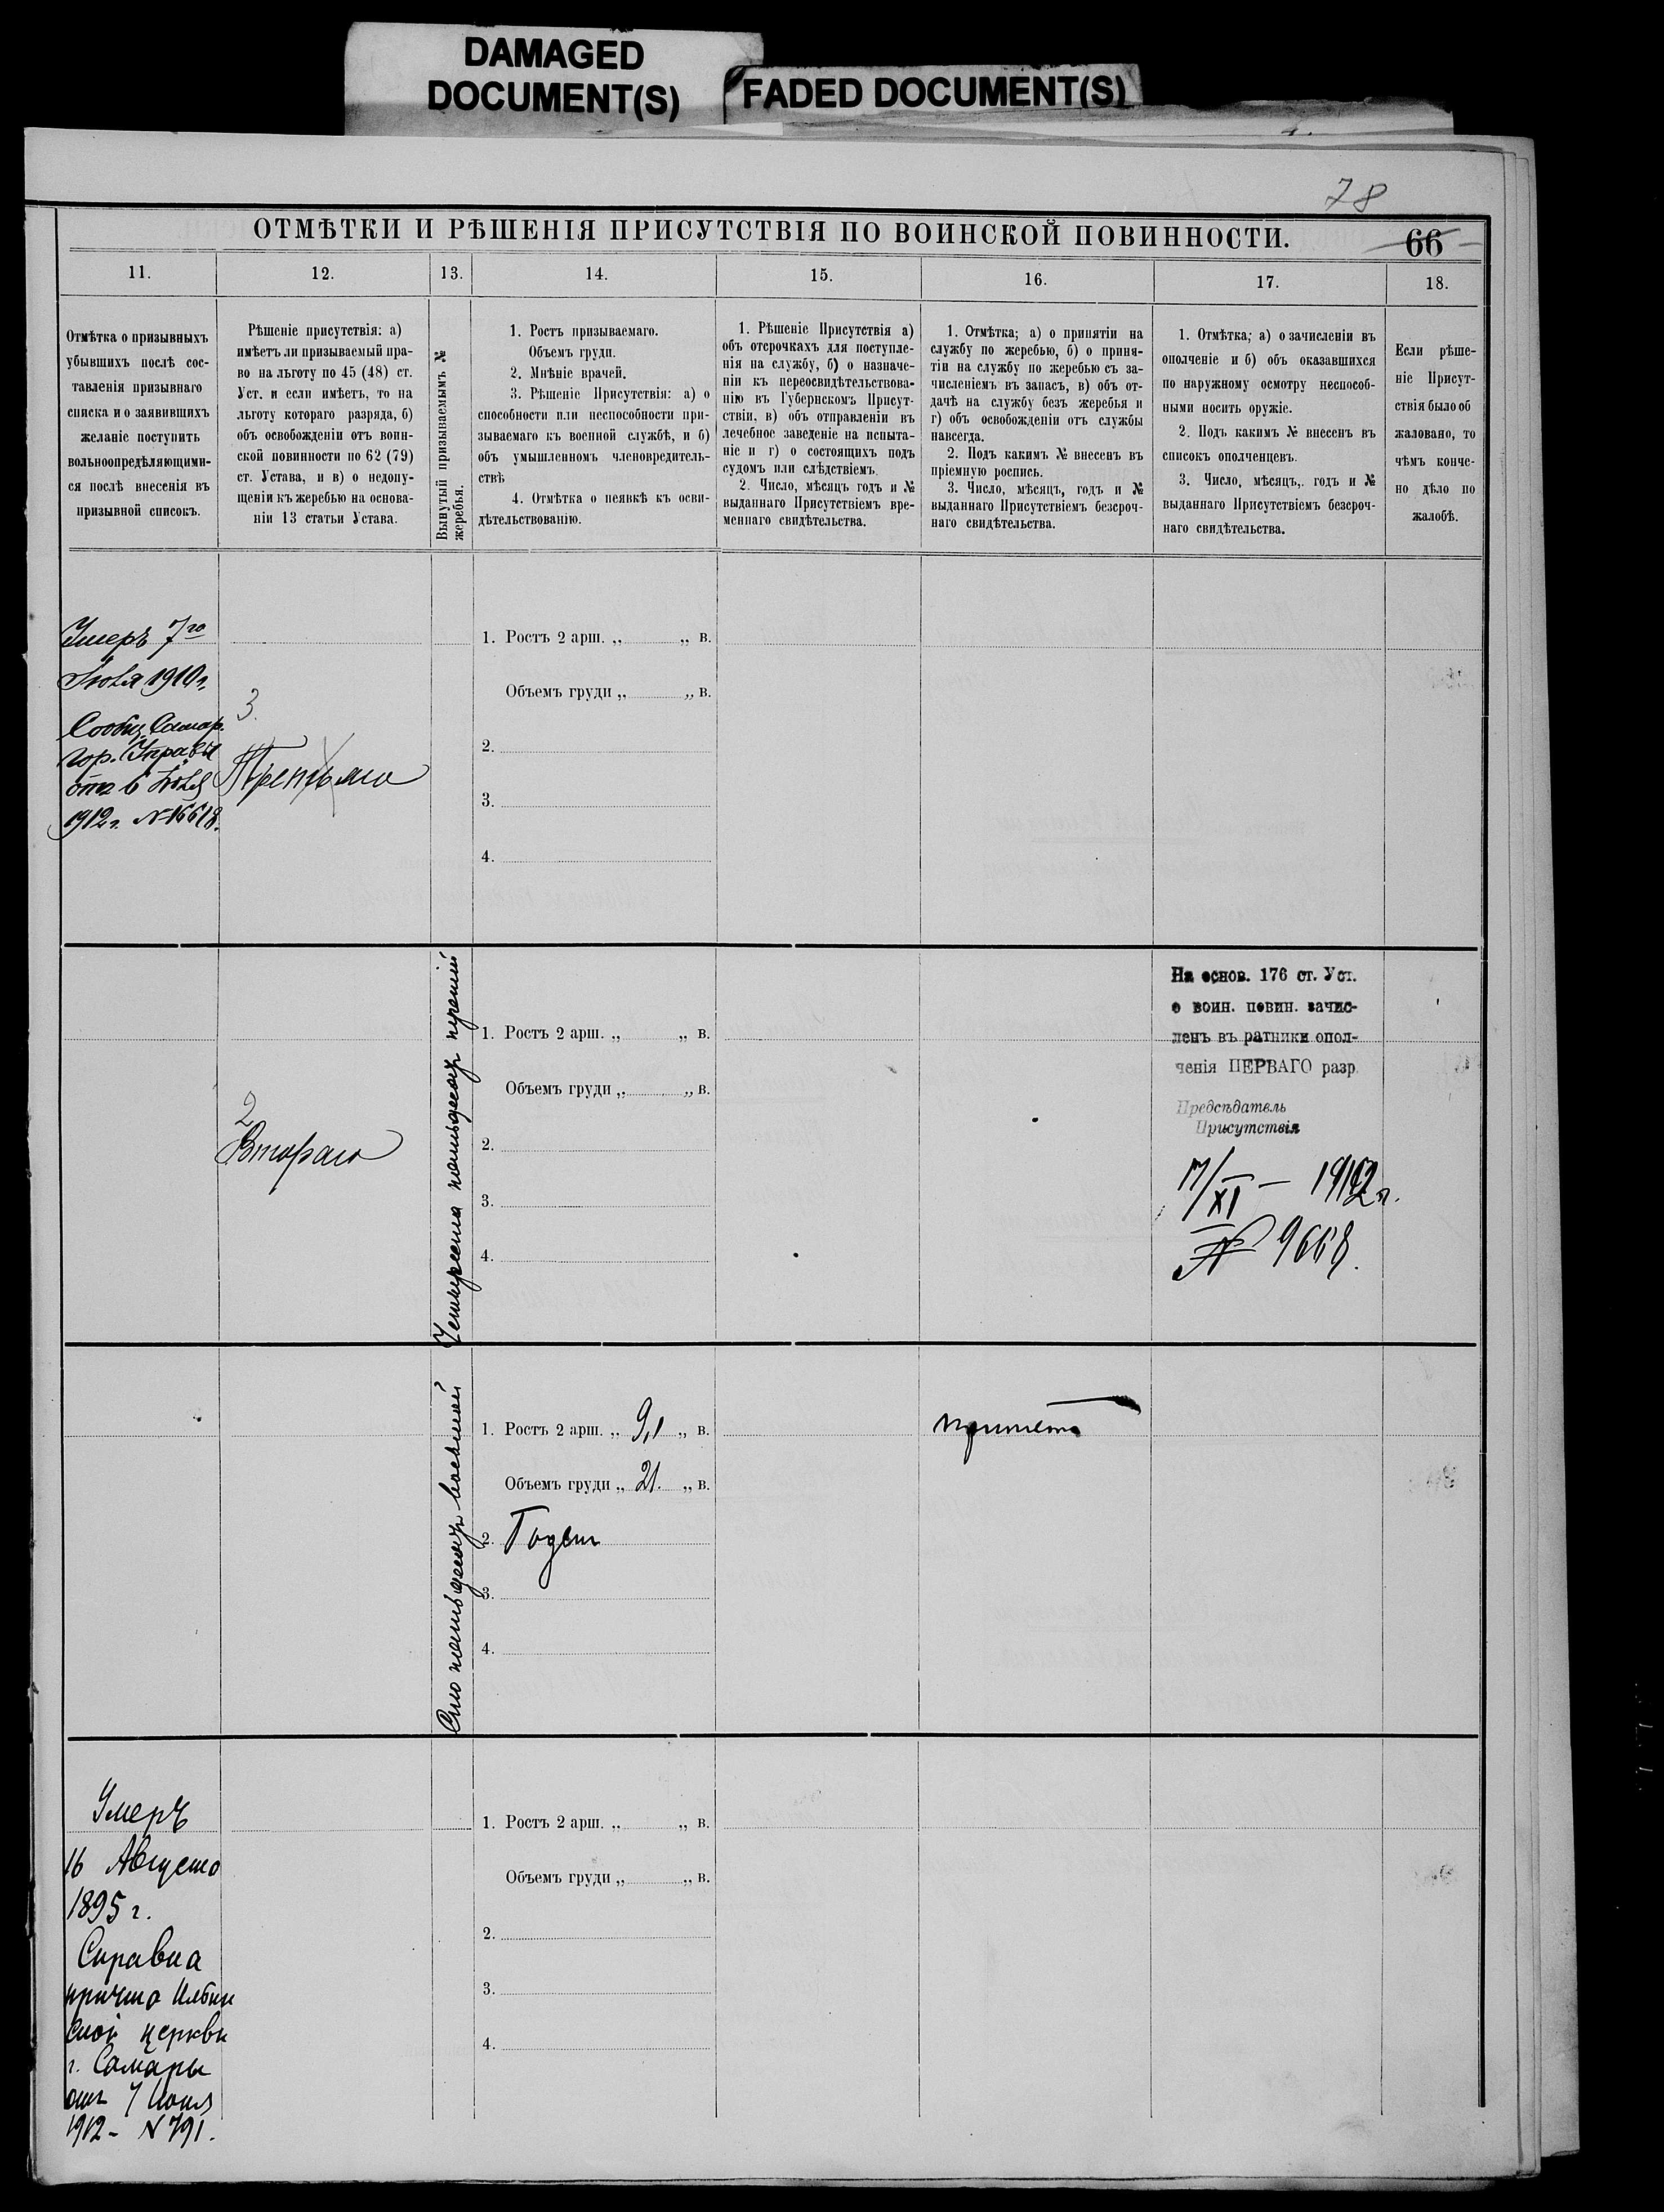 DAMAGED
DOCUMENT(S)
FADED DOCUMENT(S)
78
ОТМѢТКИ И РѢШЕНІЯ ПРИСУТСТВІЯ ПО ВОИНСКОЙ ПОВИННОСТИ.
66
11.
12.
13.
14.
15.
16.
17.
18.
Отмѣтка о призывныхъ
убывшихъ послѣ сос-
тавленія призывнаго
списка и о заявившихъ
желаніе поступить
вольноопредѣляющими-
ся послѣ внесенія въ
призывной списокъ.
Рѣшеніе присутствія: а)
имѣетъ ли призываемый пра-
во на льготу по 45 (48) ст.
Уст. и если имѣетъ, то на
льготу котораго разряда, б)
объ освобожденіи отъ воин-
ской повинности по 62 (79)
ст. Устава, и в) о недопу-
щеніи къ жеребью на основа-
ніи 13 статьи Устава.
Вынутый призываемымъ №
жеребья.
1. Ростъ призываемаго.
Объемъ груди.
2. Мнѣніе врачей.
3. Рѣшеніе Присутствія: а) о
способности или неспособности при-
зываемаго къ военной службѣ, и б)
объ умышленномъ членовредитель-
ствѣ
4. Отмѣтка о неявкѣ къ осви-
дѣтельствованію.
1. Рѣшеніе Присутствія а)
объ отсрочкахъ для поступле-
нія на службу, б) о назначе-
ніи къ переосвидѣтельствова-
нію въ Губернскомъ Присут-
ствіи. в) объ отправленіи въ
лечебное заведеніе на испыта-
ніе и г) о состоящихъ подъ
судомъ или слѣдствіемъ.
2. Число, мѣсяцъ годъ и №
выданнаго Присутствіемъ вре-
меннаго свидѣтельства.
1. Отмѣтка; а) о принятіи на
службу по жеребью, б) о приня-
тіи на службу по жеребью съ за-
численіемъ въ запасъ, в) объ от-
дачѣ на службу безъ жеребья и
г) объ освобожденіи отъ службы
навсегда.
2. Подъ какимъ № внесенъ въ
пріемную роспись.
3. Число, мѣсяцъ, годъ и №
выданнаго Присутствіемъ безсроч-
наго свидѣтельства.
1. Отмѣтка; а) о зачисленіи въ
ополченіе и б) объ оказавшихся
по наружному осмотру неспособ-
ными носить оружіе.
2. Подъ какимъ № внесенъ въ
списокъ ополченцевъ.
3. Число, мѣсяцъ,. годъ и №
выданнаго Присутствіемъ безсроч-
наго свидѣтельства.
Если рѣше-
ніе Присут-
ствія было об
жаловано, то
чѣмъ конче-
но дѣло по
жалобѣ.
Умеръ 7го
1910 г.
Сообщ. Самар.
гор. Управы
отъ 6
1912 г. № 16618.
3.
Третьяго
1. Ростъ 2 арш. „ „ в.
Объемъ груди „ „ в.
2.
3.
4.
2
Второго
Четыреста пятьдесятъ третій
1. Ростъ 2 арш. „ „ в.
Объемъ груди „ „ в.
2.
3.
4.
На основ. 176 ст. Уст.
о воин. повин. зачис-
ленъ въ ратники опол-
ченія ПЕРВАГО разр.
Предсѣдатель
Присутствія
17/XI – 1912 г.
№ 9668.
Сто пятьдесятъ восьмой
1. Ростъ 2 арш. „ 9,1 „ в.
Объемъ груди „ 21. „ в.
2. Годен
3.
4.
принятъ
Умеръ
16 Августа
1895 г.
Справка
причта Ильин
ской церкви
г. Самары
отъ 7 Июня
1912 – № 791.
1. Ростъ 2 арш. „ „ в.
Объемъ груди „ „ в.
2.
3.
4.